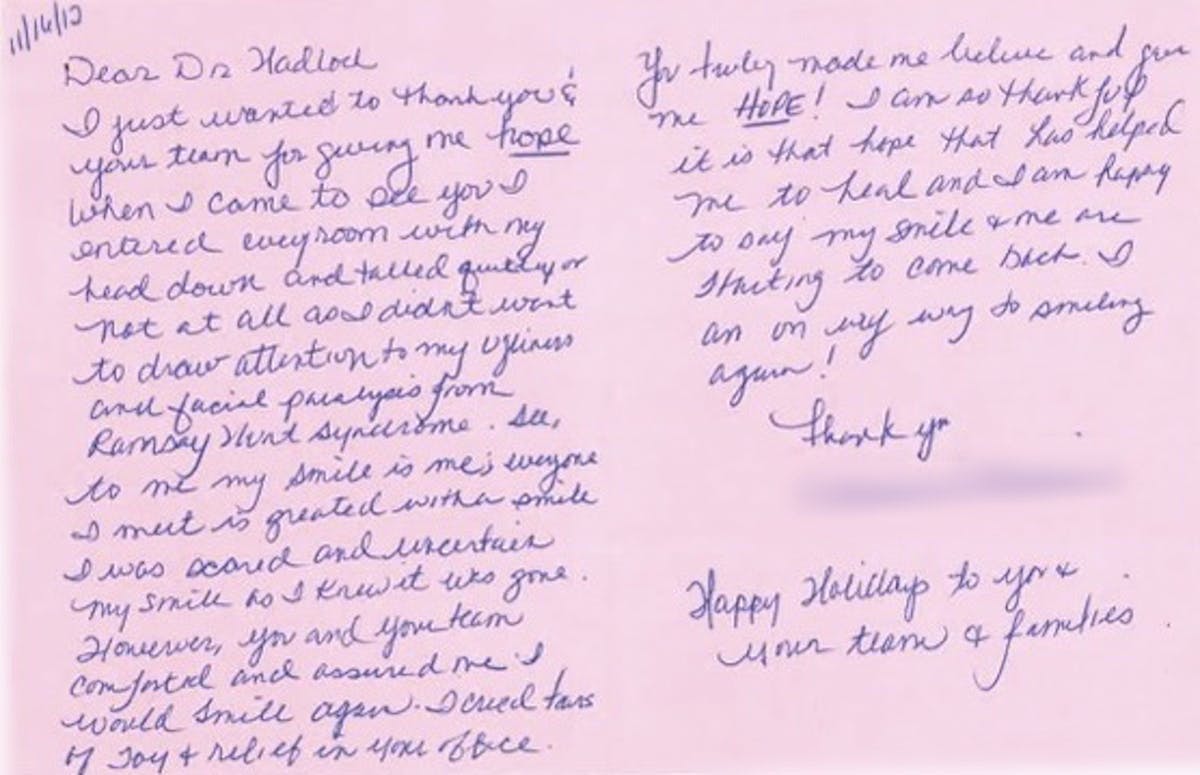 11/16/12
Dear Dr Hadlock
I just wanted to thank you &
your team for giving me hope
When I came to see you I
entered every room with my
head down and talked quietly or
not at all as I didn't want
to draw attention to my ugliness
and facial paralysis from
Ramsay Hunt Syndrome. See,
to me my smile is me; everyone
I meet is greated with a smile
I was scared and uncertain
my smile as I knew it was gone.
However, you and your team
comforted and assured me I
would smile again. I cried tears
of Joy & relief in your office.
You truley made me believe and gave
me HOPE! I am so thankful
it is that hope that has helped
me to heal and I am happy
to say my smile & me are
starting to come back. I
am on my way to smiling
again!
Thank you
Happy Holidays to you &
your team & families